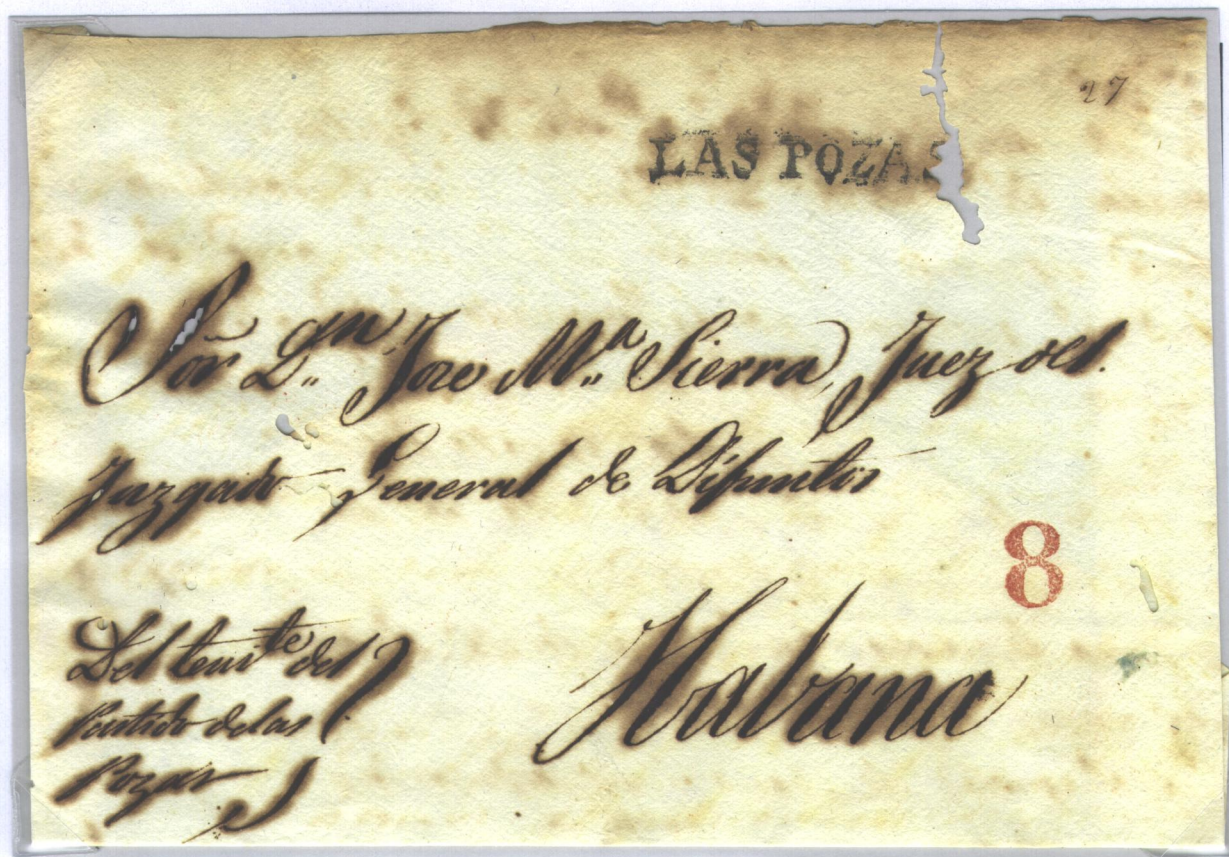 27
LAS POZAS
Sor Dn. Jose Ma. Sierra, Juez del
Juzgado General de Difuntos
8
Del tenite del
Partido de las
Pozas
Habana